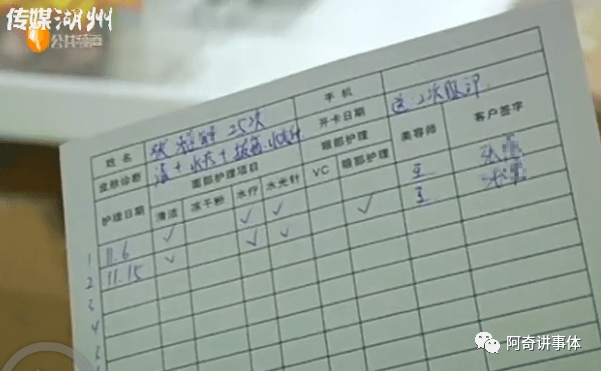 传媒湖州
公共频道
姓名 25次 手机
皮肤诊断 清+水疗+ 开卡日期 送:2次眼部
护理日期 面部护理项目 眼部护理 美容师 客户签字
清洁 冻干粉 水疗 水光针 VC 眼部护理
1 11.6 ✓ ✓ ✓ 王
2 11.15 ✓ ✓ ✓ ✓ 王
3
4
5
阿奇讲事体